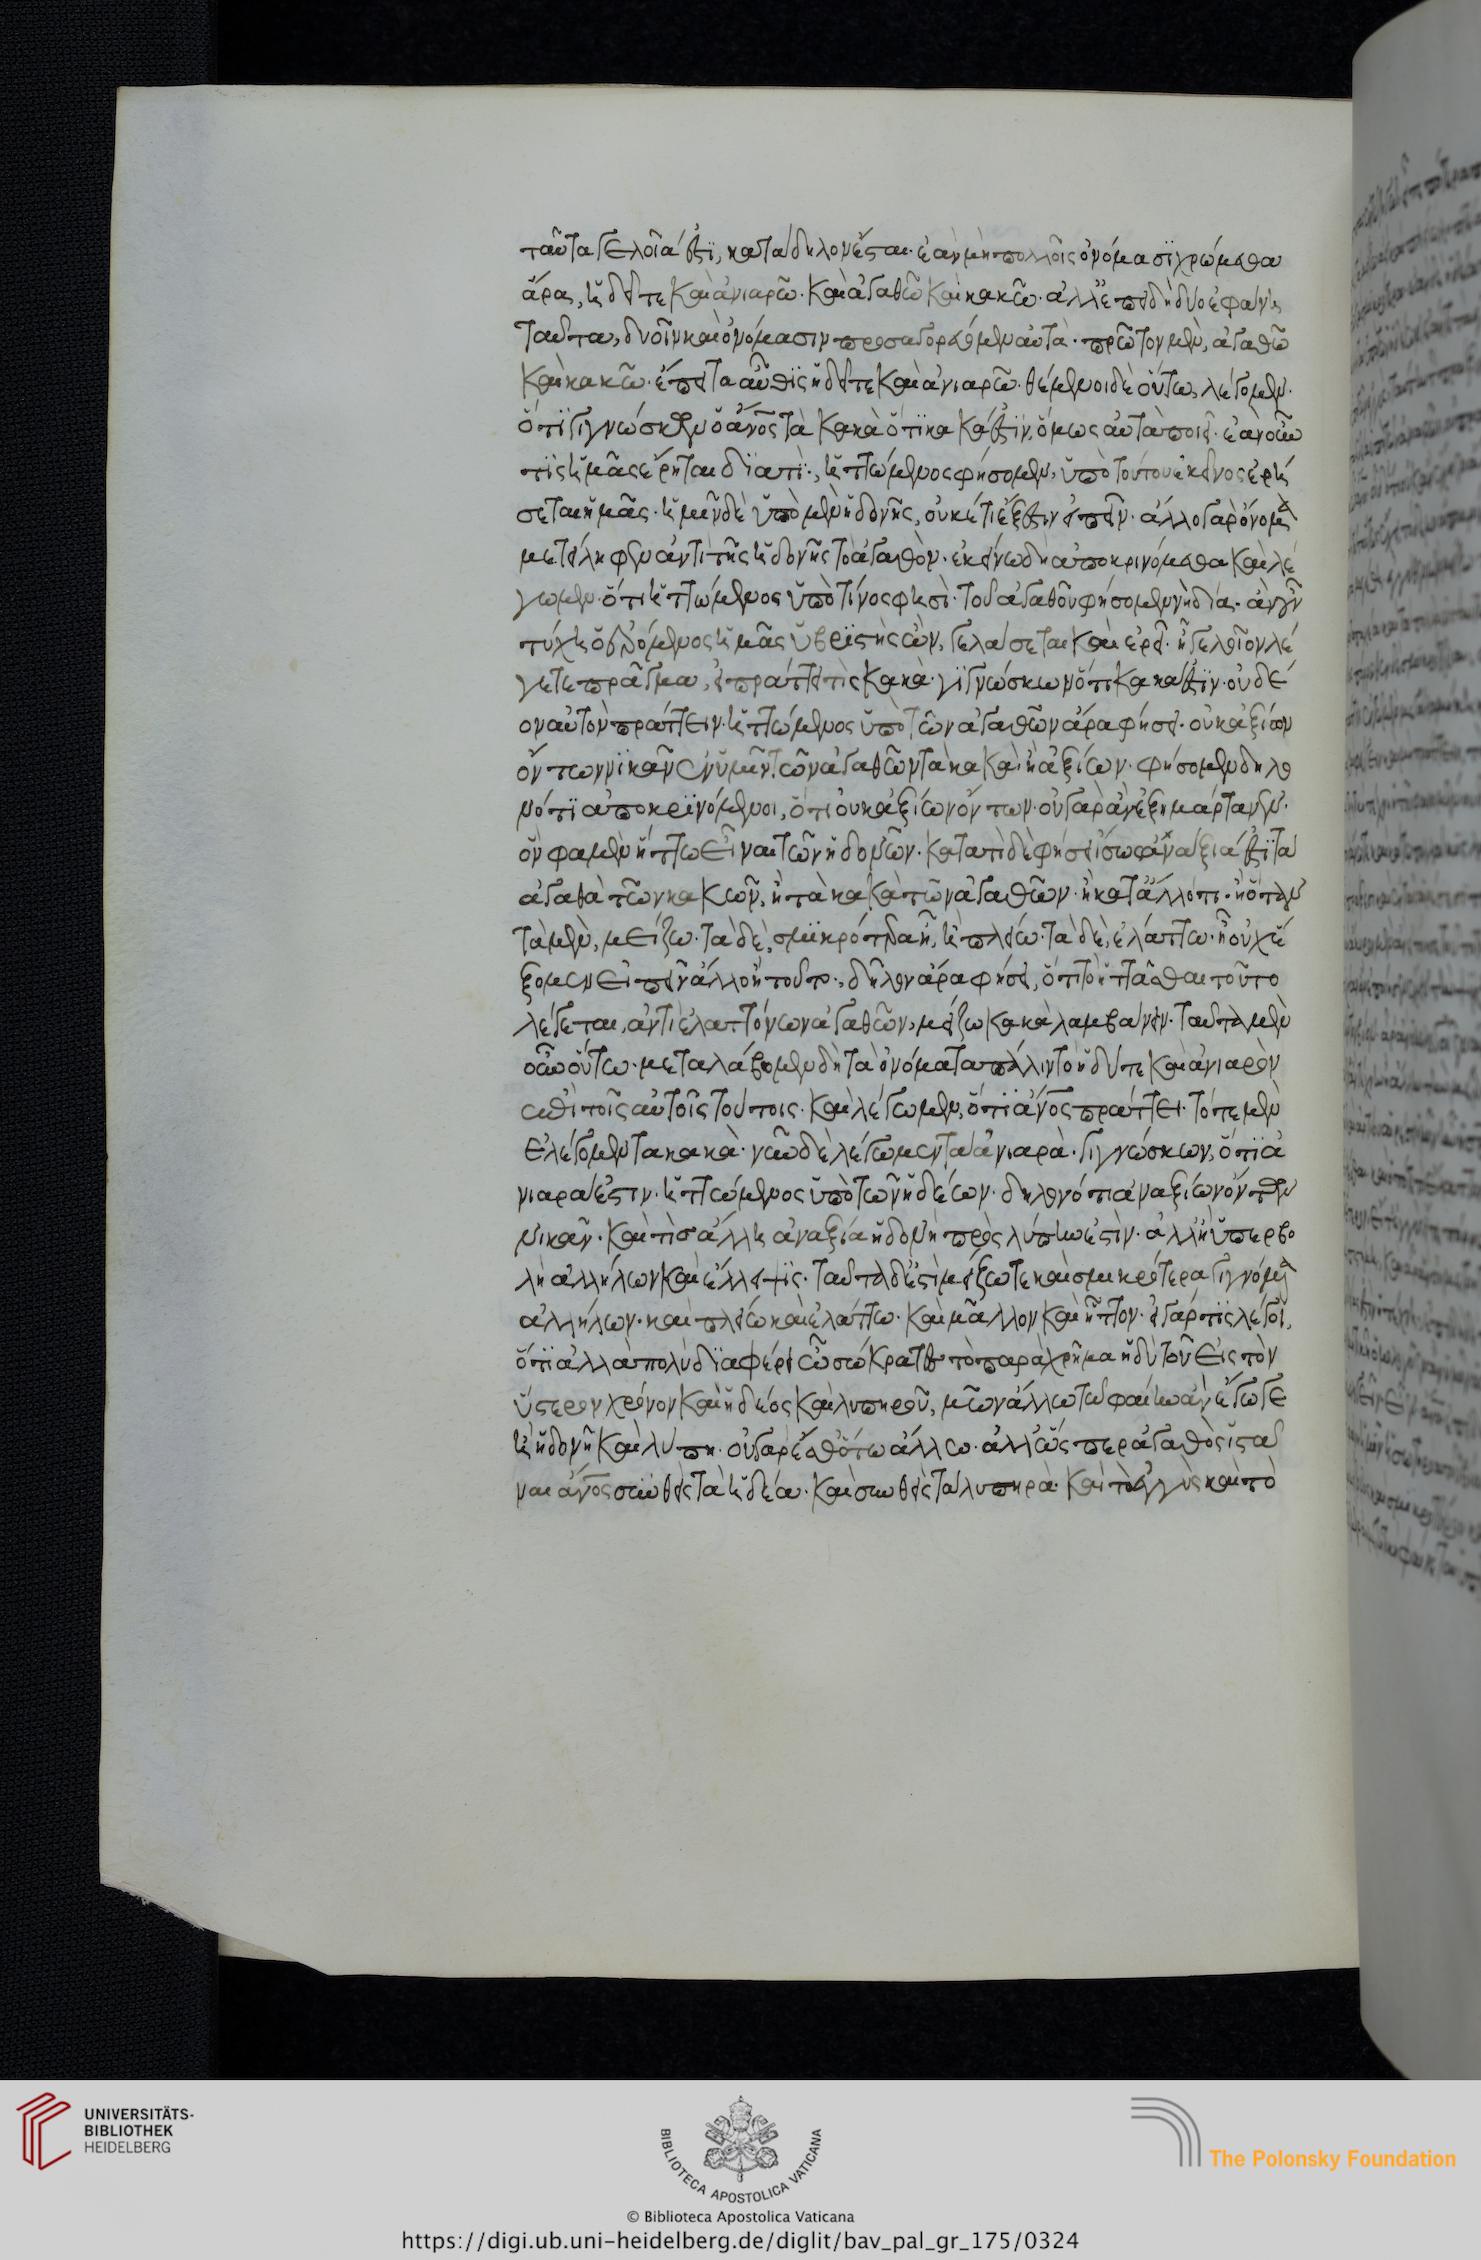 ταῦτα γελοῖά ἐστι, κατάδηλον ἔσται· ἐὰν μὴ πολλοῖς ὀνόμασι χρώμεθα
ἅρα, ἡδεῖ τε καὶ ἀνιαρῶ· καὶ ἀγαθῶ καὶ κακῶ· ἀλλ' ἐπειδὴ δύο ἐφάνη
ταῦτα, δυοῖν καὶ ὀνόμασιν προσαγορεύωμεν αὐτά· πρῶτον μὲν, ἀγαθῶ
καὶ κακῶ· ἔπειτα αὖθις ἡδεῖ τε καὶ ἀνιαρῶ· θέμενοι δὲ οὕτω, λέγομεν·
ὅτι γιγνώσκων ὁ ἄνος τὰ κακὰ ὅτι κακά ἐστιν, ὅμως αὐτὰ ποιεῖ· ἐὰν οὖν
τις ἡμᾶς ἔρηται διατί·, ἡττώμενος φήσομεν, ὑπὸ τοῦ τοῦ ἐκεῖνος ἐρή
σεται ἡμᾶς· ἡμῖν δὲ ὑπὸ μὲν ἡδονῆς, οὐκέτι ἔξεστιν εἰπεῖν· ἄλλο γὰρ ὄνομα
μετείληφεν ἀντὶ τῆς ἡδονῆς τὸ ἀγαθόν· ἐκείνω δὴ ἀποκρινόμεθα καὶ λέ
γωμεν· ὅτι ἡττώμενος ὑπὸ τίνος φησί· τοῦ ἀγαθοῦ φήσομεν νὴ δία· ἂν οὖν
τύχη ὁ ἐρόμενος ἡμᾶς ὑβριστὴς ὢν, γελάσεται καὶ ἐρεῖ· ἦ γελοῖον λέ
γετε πρᾶγμα, εἰ πράττει τὶς κακὰ· γιγνώσκων ὅτι κακά ἐστιν· οὐ δέ
ον αὐτὸν πράττειν· ἡττώμενος ὑπὸ τῶν ἀγαθῶν ἆρα φήσει· οὐκ ἀξίων
ὄντων νικᾶν ἐν ὑμῖν τῶν ἀγαθῶν τὰ κακά· ἢ ἀξίων· φήσομεν δῆλο
νότι ἀποκρινόμενοι, ὅτι οὐκ ἀξίων ὄντων· οὐ γὰρ ἂν ἐξημάρτανεν·
ὅν φαμεν ἥττω εἶναι τῶν ἡδονῶν· κατὰ τί δὲ φήσει ἴσως ἀνάξιά ἐστι τὰ
ἀγαθὰ τῶν κακῶν, ἢ τὰ κακὰ τῶν ἀγαθῶν· ἢ κατ' ἄλλό τι· ἢ ὅταν
τὰ μὲν, μείζω· τὰ δὲ, σμικρότερα ἦ, ἢ πλείω· τὰ δὲ, ἐλάττω· ἦ οὐχ ἕ
ξομεν εἰπεῖν ἄλλο ἢ τοῦτο·, δῆλον ἄρα φήσει, ὅτι τὸ ἡττᾶσθαι τοῦτο
λέγεται, ἀντὶ ἐλαττόνων ἀγαθῶν, μείζω κακὰ λαμβάνειν· ταῦτα μὲν
οὖν οὕτω· μεταλάβομεν δὴ τὰ ὀνόματα πάλιν τὸ ἡδύ τε καὶ ἀνιαρὸν
ἐπὶ τοῖς αὐτοῖς τούτοις· καὶ λέγωμεν, ὅτι ἄνος πράττει· τότε μὲν
ἐλέγομεν τὰ κακὰ· νῦν δὲ λέγωμεν τὰ ἀνιαρὰ· γιγνώσκων, ὅτι ἀ
νιαρά ἐστιν· ἡττώμενος ὑπὸ τῶν ἡδέων· δηλονότι ἀναξίων ὄντων
νικᾶν· καὶ τίς ἄλλη ἀναξία ἡδονῆ πρὸς λύπην ἐστὶν· ἀλλ' ἢ ὑπερβο
λὴ ἀλλήλων καὶ ἔλλειψις· ταῦτα δ' ἐστὶ μείζω τε καὶ σμικρότερα γιγνόμενα
ἀλλήλων· καὶ πλείω καὶ ἐλάττω· καὶ μᾶλλον καὶ ἧττον· εἰ γάρ τις λέγοι,
ὅτι ἀλλὰ πολὺ διαφέρει ὦ σώκρατες τὸ παραχρῆμα ἡδὺ τοῦ εἰς τὸν
ὕστερον χρόνον καὶ ἡδέος καὶ λυπηροῦ, μῶν ἄλλω τω φαίην ἂν ἔγωγε
ἢ ἡδονῆ καὶ λύπη· οὐ γὰρ ἔσθ' ὅτω ἄλλω· ἀλλ' ὥσπερ ἀγαθὸς ἱστά
ναι ἄνος συνθεὶς τὰ ἡδέα· καὶ συνθεὶς τὰ λυπηρὰ· καὶ τὸ ἐγγὺς καὶ τὸ
UNIVERSITÄTS-
BIBLIOTHEK
HEIDELBERG
BIBLIOTECA APOSTOLICA VATICANA
The Polonsky Foundation
© Biblioteca Apostolica Vaticana
https://digi.ub.uni-heidelberg.de/diglit/bav_pal_gr_175/0324